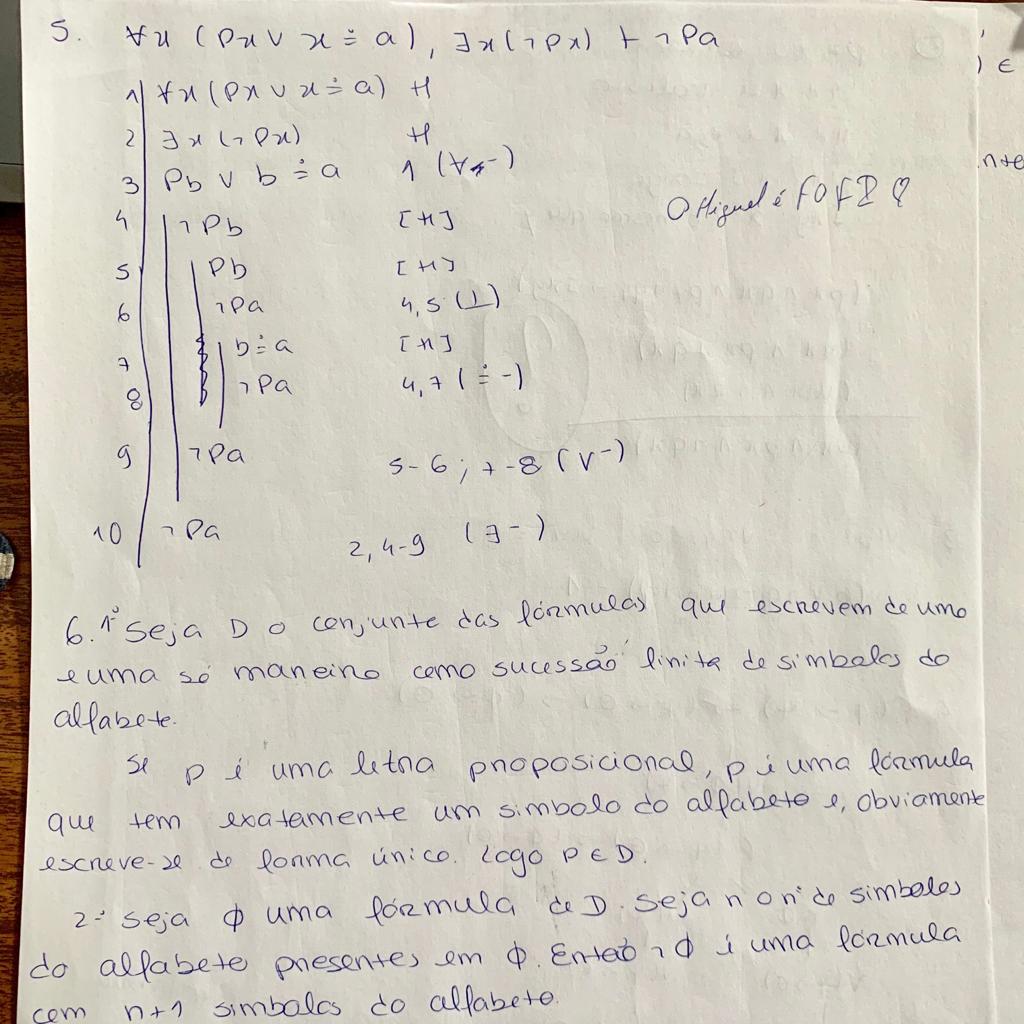 5. ∀x (Px ∨ x ≐ a), ∃x(¬Px) ⊢ ¬Pa
1 ∀x (Px ∨ x ≐ a) H
2 ∃x (¬Px) H
3 Pb ∨ b ≐ a 1 (∀-)
O Miguel é FOFI
4 ¬Pb [H]
5 Pb [H]
6 ¬Pa 4,5 (⊥)
7 b ≐ a [H]
8 ¬Pa 4,7 (≐-)
9 ¬Pa 5-6; 7-8 (∨-)
10 ¬Pa 2, 4-9 (∃-)
6. 1º Seja D o conjunto das fórmulas que escrevem de uma
e uma só maneira como sucessão finita de simbolos do
alfabeto.
Se p é uma letra proposicional, p é uma fórmula
que tem exatamente um simbolo do alfabeto e, obviamente
escreve-se de forma única. Logo p ∈ D.
2º Seja ϕ uma fórmula de D. Seja n o nº de simbolos
do alfabeto presentes em ϕ. Então ¬ϕ é uma fórmula
com n+1 simbolos do alfabeto.
) ∈
nte